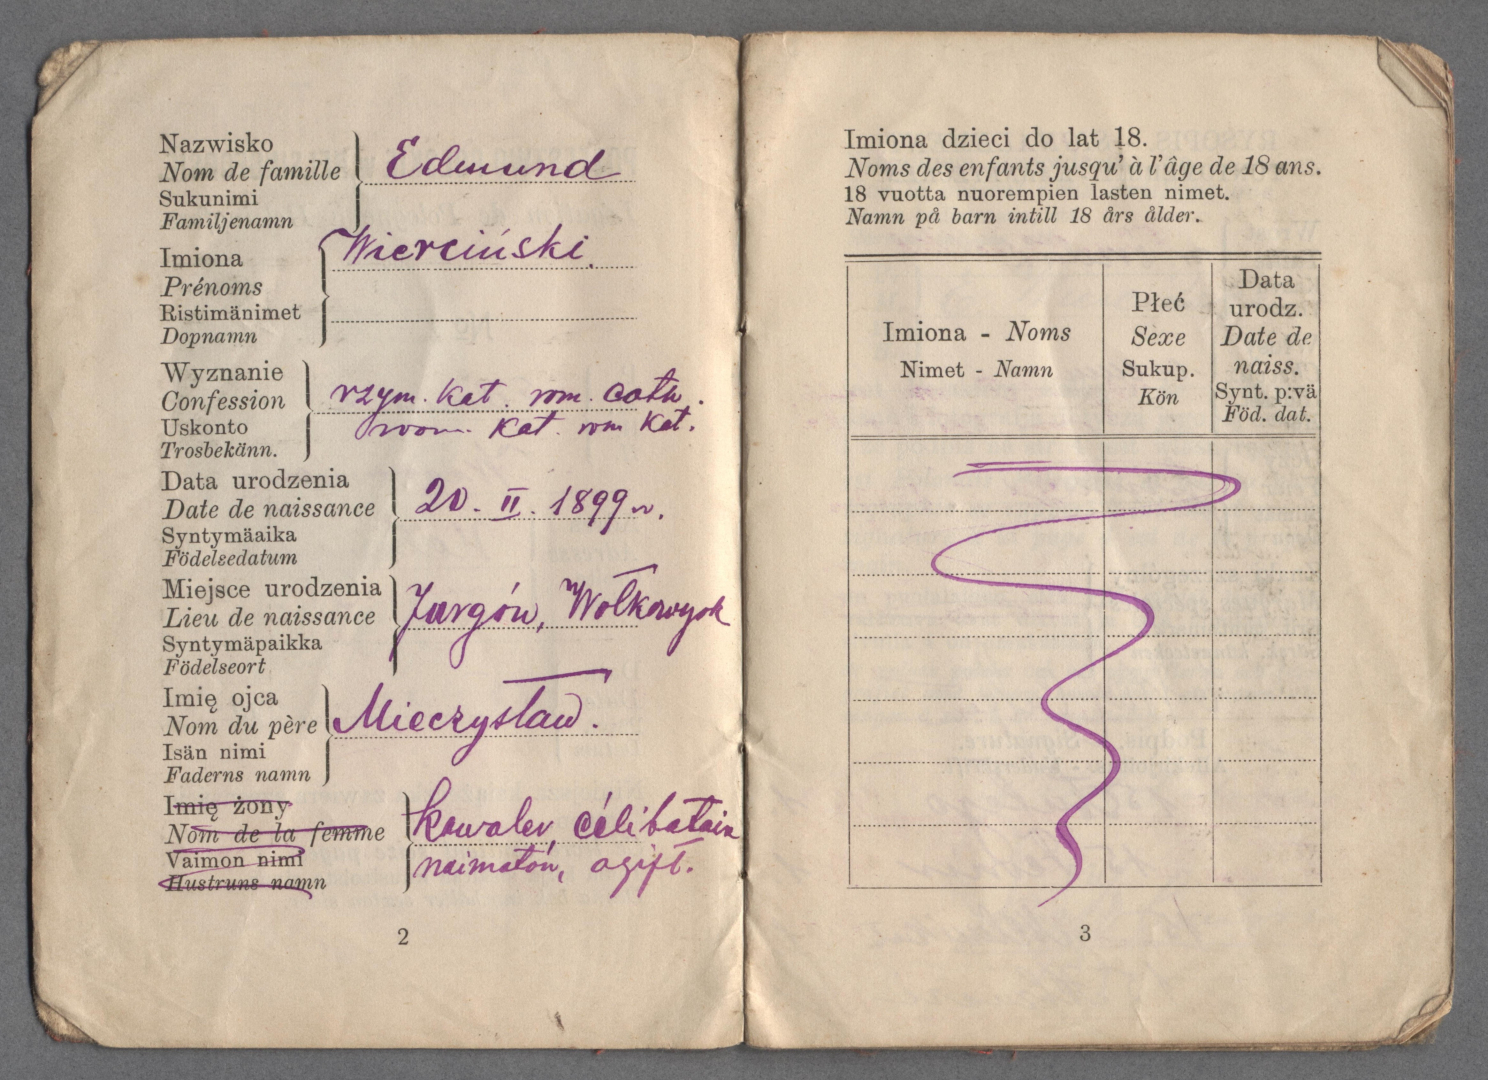 Nazwisko
Nom de famille
Sukunimi
Familjenamn
Edmund
Imiona
Prénoms
Ristimänimet
Dopnamn
Wierciński.
Wyznanie
Confession
Uskonto
Trosbekänn.
rzym. kat. rom. cath.
room. kat. rom kat.
Data urodzenia
Date de naissance
Syntymäaika
Födelsedatum
20. II. 1899 r.
Miejsce urodzenia
Lieu de naissance
Syntymäpaikka
Födelseort
Jargów, Wołkowysk
Imię ojca
Nom du père
Isän nimi
Faderns namn
Mieczysław.
Imię żony
Nom de la femme
Vaimon nimi
Hustruns namn
kawaler, célibatair
naimatón, ogift.
2
Imiona dzieci do lat 18.
Noms des enfants jusqu' à l'âge de 18 ans.
18 vuotta nuorempien lasten nimet.
Namn på barn intill 18 års ålder.
Imiona - Noms
Nimet - Namn
Płeć
Sexe
Sukup.
Kön
Data
urodz.
Date de
naiss.
Synt. p:vä
Föd. dat.
3